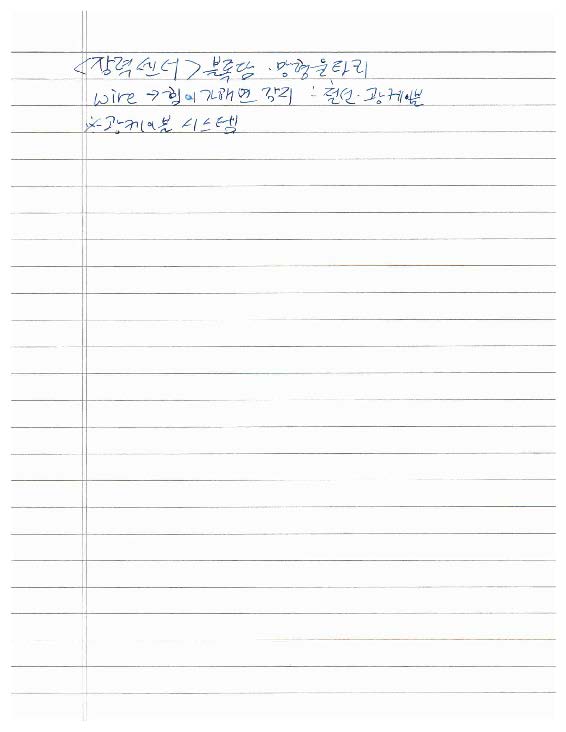 <장력센서> 블록담·망형울타리
wire → 힘이 가해면 감지 : 철선·광케이블
※ 광케이블 시스템